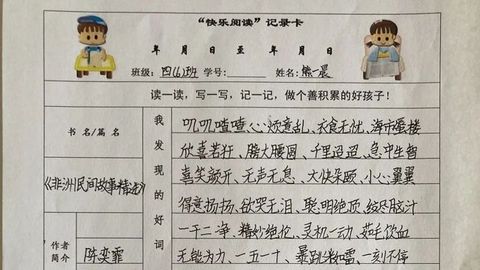 “快乐阅读”记录卡
年 月 日 至 年 月 日
班级：四(6)班 学号： 姓名：熊一晨
读一读，写一写，记一记，做个善积累的好孩子！
书 名/篇 名
《非洲民间故事精选》
作者简介
陈奕霏
我发现的好词
叽叽喳喳、心烦意乱、衣食无忧、海市蜃楼
欣喜若狂、膀大腰圆、千里迢迢、急中生智
喜笑颜开、无声无息、大快朵颐、小心翼翼
得意扬扬、欲哭无泪、聪明绝顶、绞尽脑汁
一干二净、精妙绝伦、灵机一动、茹毛饮血
无能为力、一五一十、暴跳如雷、一刻不停